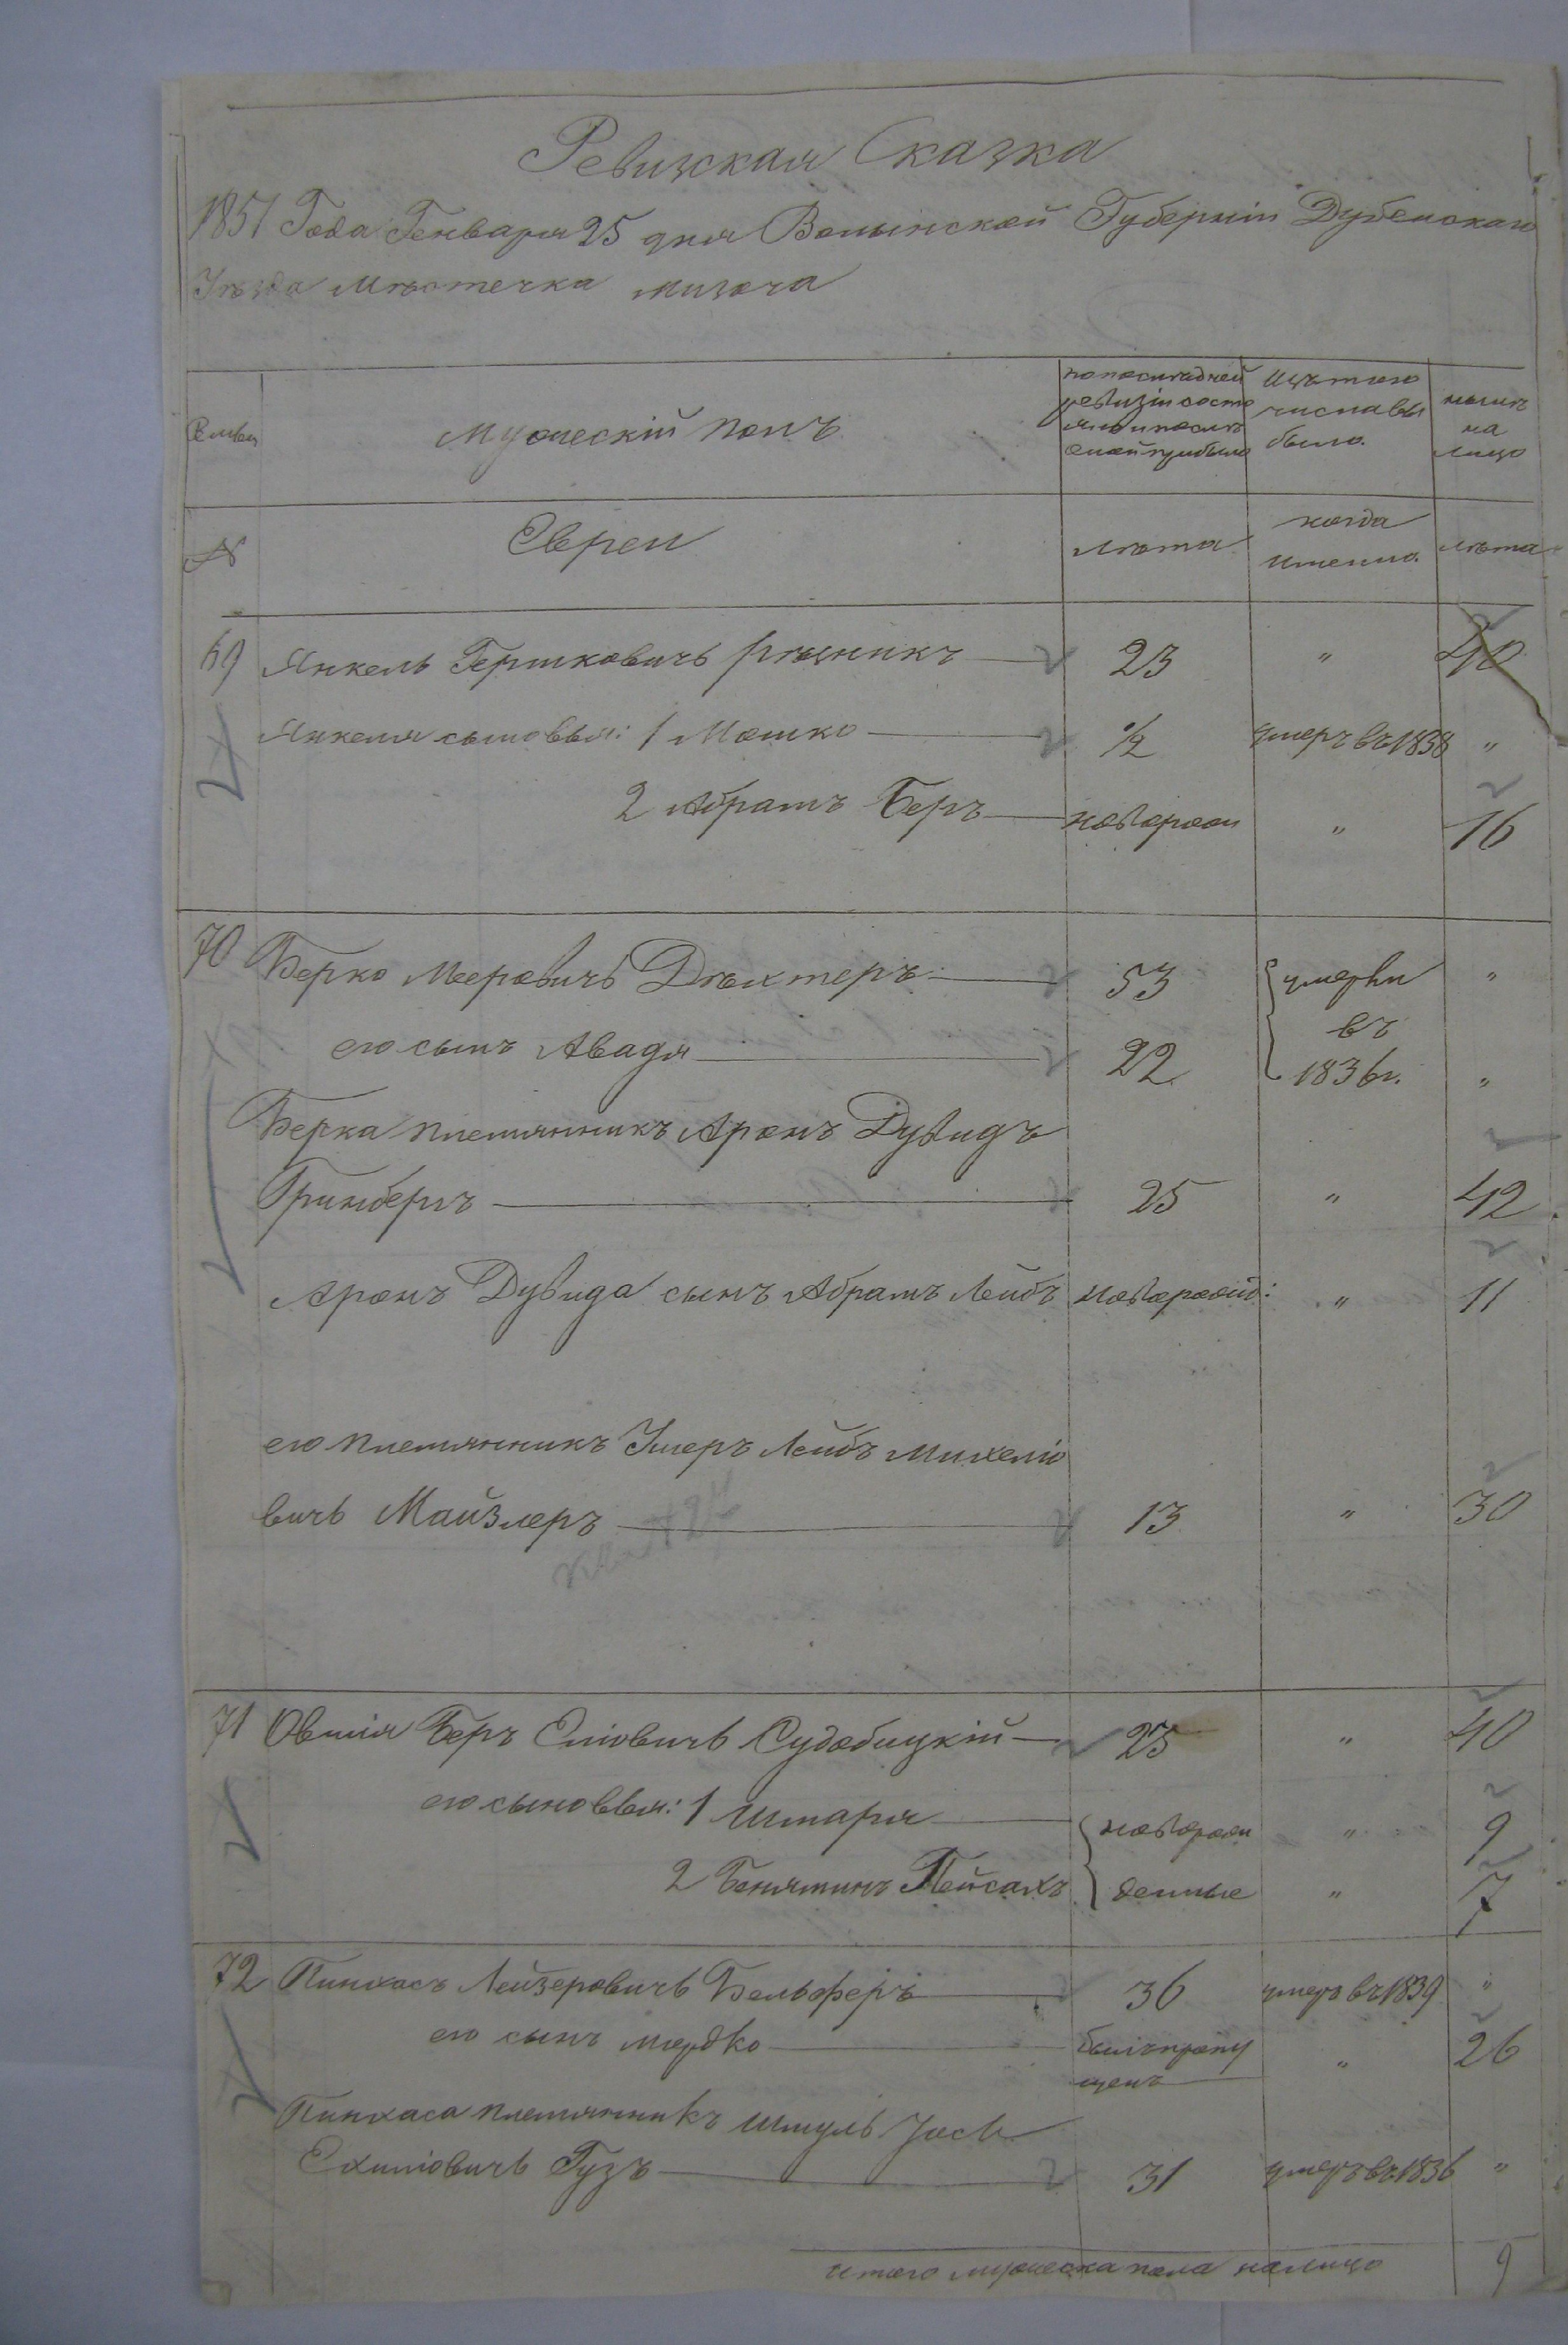 Ревизская Сказка
1851 Года Генваря 25 дня Волынской Губерніи Дубенскаго
Уѣзда Мѣстечка Мизоча
Семьи
Мужескій полъ
по послѣдней
ревизіи состо
яло и послѣ
оной прибыло
Изъ того
числа вы
было.
нынѣ
на
лицо
№
Евреи
лѣта
когда
именно.
лѣта
69 Янкель Гершковичъ Рѣзникъ 23 " 40
Янкеля сыновья: 1 Мошко 1/2 умеръ въ 1838 "
2 Абрамъ Беръ новорож " 16
70 Берко Мееровичъ 53 умерли "
въ
его сынъ Авадя 22 1836 г. "
Берка племянникъ Аронъ Дувидъ
Гринбергъ 25 " 42
Аронъ Дувида сынъ Абрамъ Лейбъ новорожд: " 11
его племянникъ Умеръ Лейбъ Михеліо
вичъ Майзлеръ 13 " 30
71 Овшія Беръ Еліовичъ Судобицкій 25 " 40
его сыновья: 1 новорож " 9
2 Беньяминъ Пейсахъ денные " 7
72 Пинхасъ Лейзеровичъ Бельферъ 36 умеръ въ 1839 "
его сынъ Мордко былъ пропу " 26
щенъ
Пинхаса племянникъ Шмуль Іось
Ехиліовичъ Гузъ 31 умеръ въ 1836 "
итого мужеска пола на лицо 9